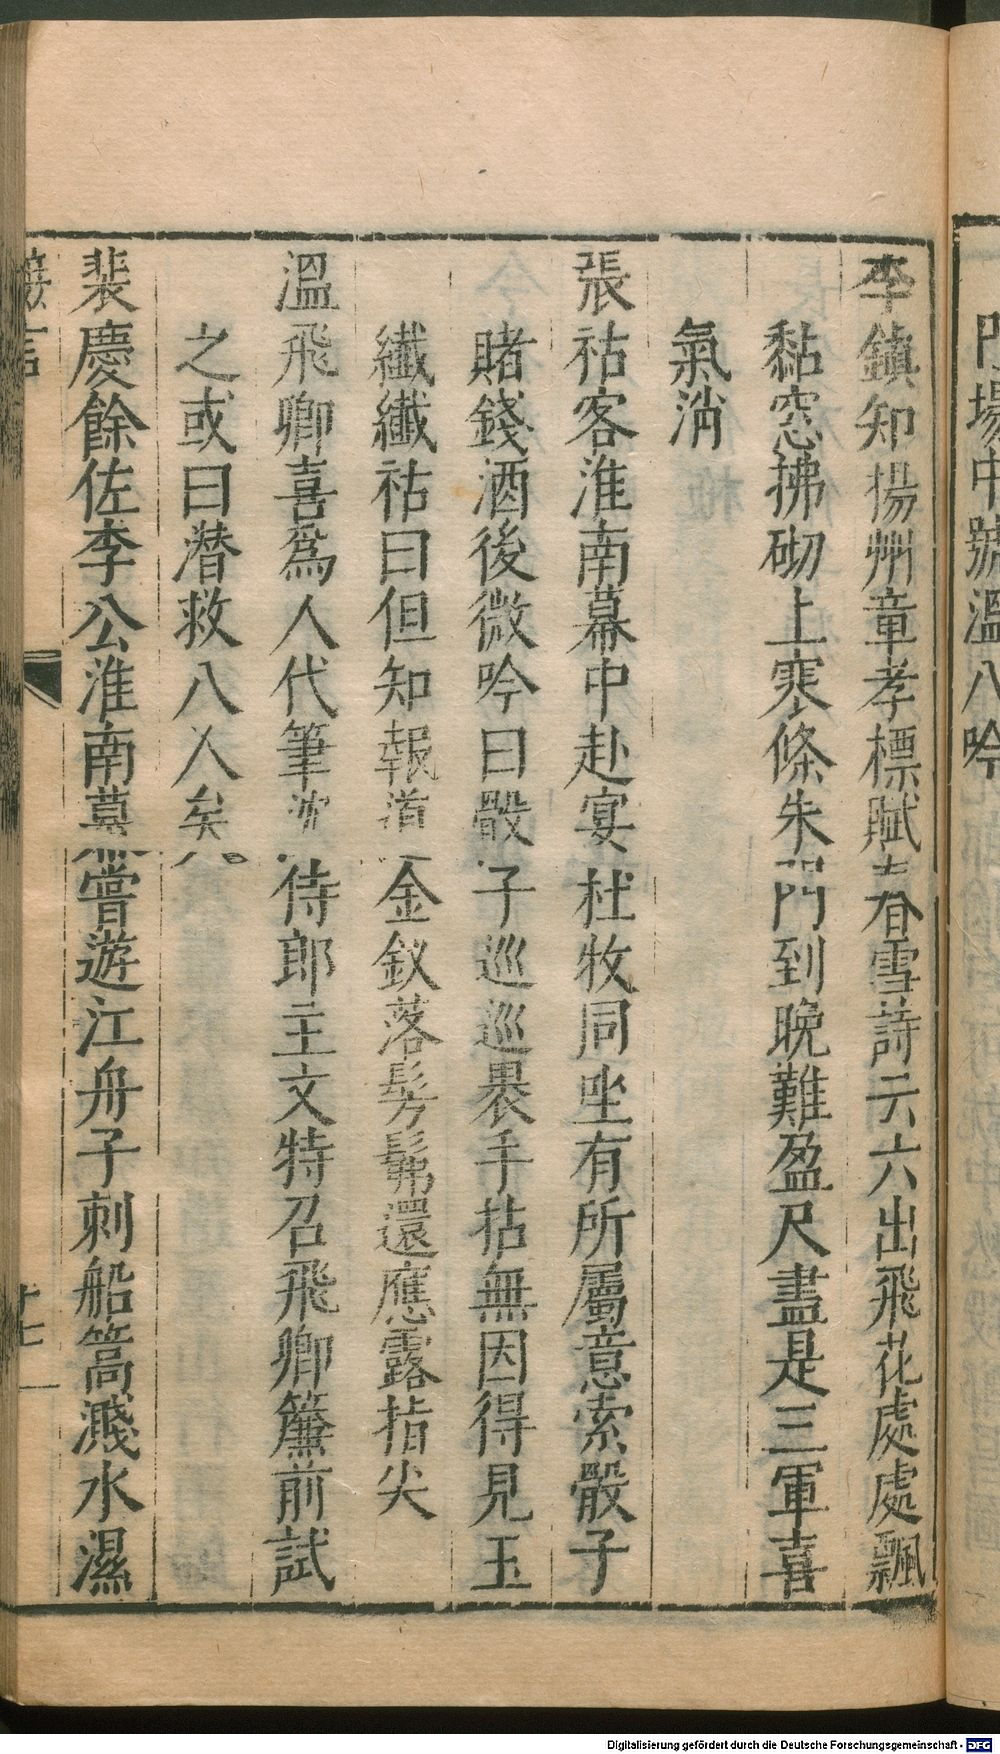 門場中號溫八吟
李鎮知揚州章孝標賦春雪詩云六出飛花處處飄
黏窓拂砌上寒條朱門到晚難盈尺盡是三軍喜
氣消
張祜客淮南幕中赴宴杜牧同坐有所屬意索骰子
賭錢酒後微吟曰骰子巡巡裹手拈無因得見玉
纖纖祜曰但知報道金釵落髣髴還應露指尖
溫飛卿喜為人代筆沈侍郎主文特召飛卿簾前試
之或曰潛救八人矣
裴慶餘佐李公淮南幕嘗遊江舟子刺船篙濺水濕
十七
Digitalisierung gefördert durch die Deutsche Forschungsgemeinschaft - DFG